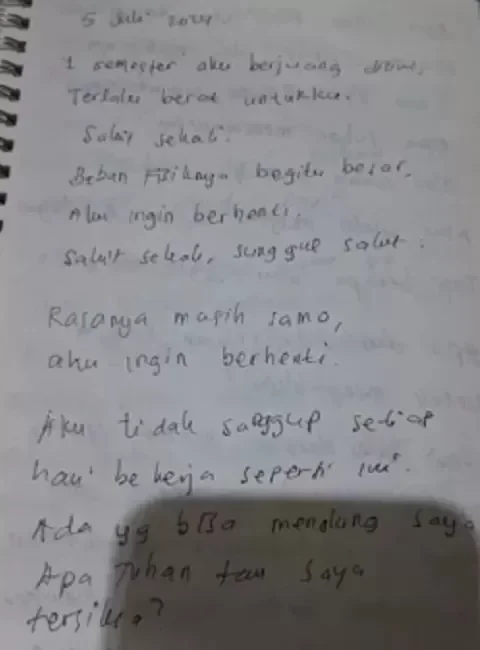 5 Juli 2024
1 semester aku berjuang disini,
Terlalu berat untukku.
Sakit sekali.
Beban Fisiknya begitu besar,
Aku ingin berhenti.
Sakit sekali, sungguh sakit.
Rasanya masih sama,
aku ingin berhenti.
Aku tidak sanggup setiap
hari bekerja seperti ini.
Ada yg bisa mendukung saya
Apa Tuhan tau saya
tersiksa?